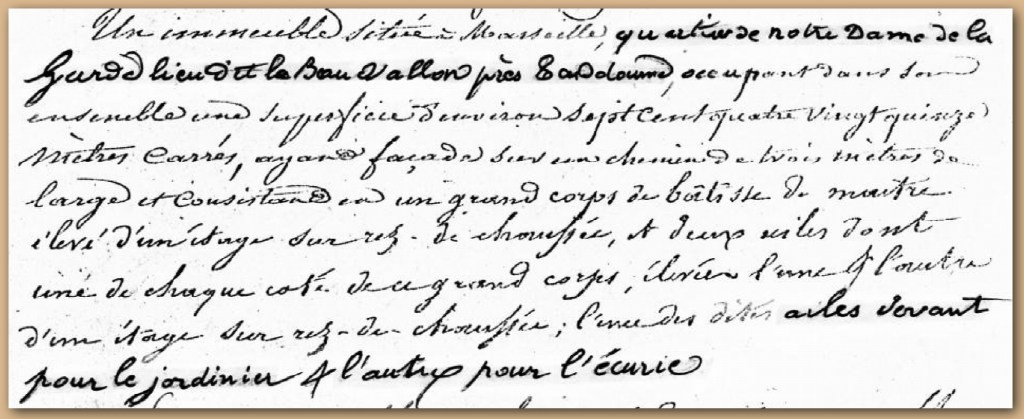 Un immeuble situé à Marseille, quartier de notre Dame de la
Garde lieu dit le Beau Vallon près Endoume, occupant dans son
ensemble une superficie d'environ sept cent quatre vingt quinze
mètres carrés, ayant façade sur un chemin de trois mètres de
large et consistant en un grand corps de bâtisse de maître
élevé d'un étage sur rez-de-chaussée, et deux ailes dont
une de chaque coté de ce grand corps, élevées l'une & l'autre
d'un étage sur rez-de-chaussée; l'une des dites ailes servant
pour le jardinier & l'autre pour l'écurie